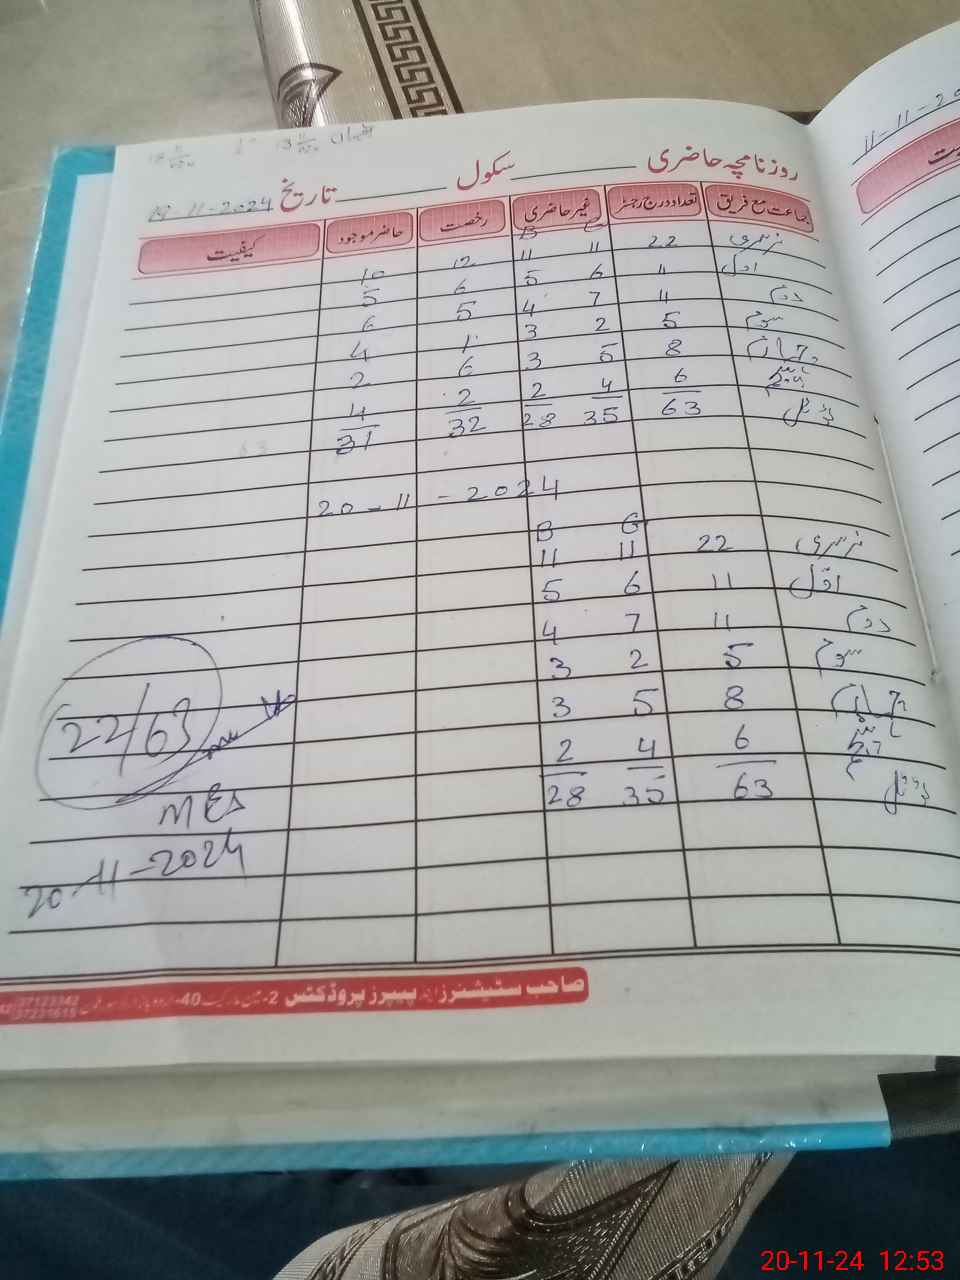 روزنامچہ حاضری ______ سکول ______ تاریخ 19-11-2024
جماعت مع فریق تعداد درج رجسٹر غیر حاضری رخصت حاضر موجود کیفیت
B G
نرسری 22 11 11 12 10
اول 11 6 5 6 5
دوم 11 7 4 5 6
سوم 5 2 3 1 4
چہارم 8 5 3 6 2
پنجم 6 4 2 2 4
ٹوٹل 63 35 28 32 31
20-11-2024
B G
نرسری 22 11 11
اول 11 6 5
دوم 11 7 4
سوم 5 2 3
چہارم 8 5 3
پنجم 6 4 2
ٹوٹل 63 35 28
22/63
MEA
20-11-2024
صاحب سٹیشنرز اینڈ پیپرز پروڈکٹس 2-
11-11-20
20-11-24 12:53